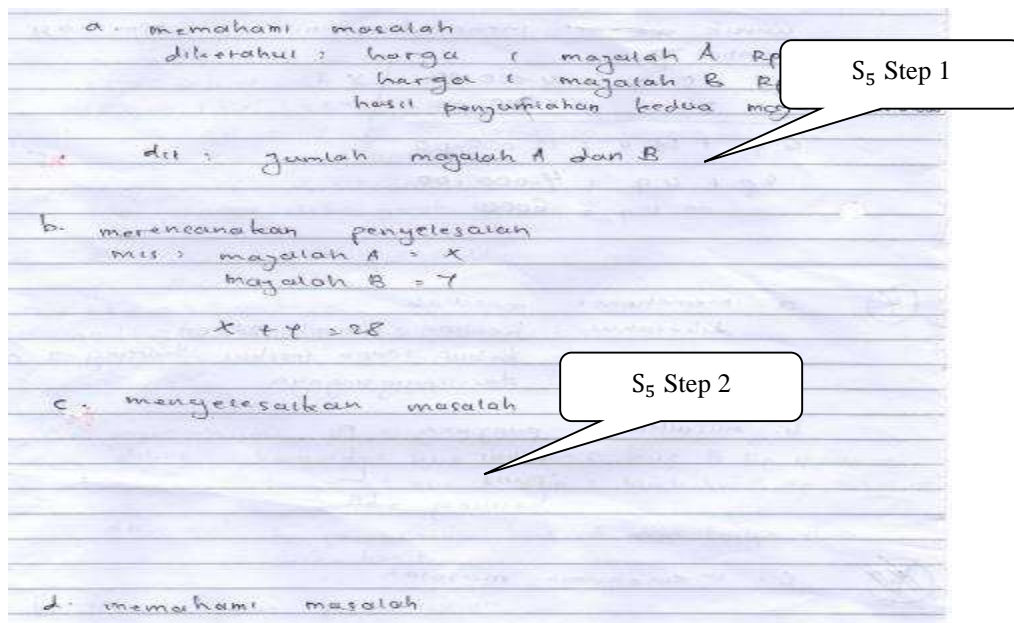 a. memahami masalah
diketahui : harga 1 majalah A Rp
harga 1 majalah B Rp
hasil penjumlahan kedua
S₅ Step 1
dit : Jumlah majalah A dan B
b. merencanakan penyelesaian
mis : majalah A = x
majalah B = y
x + y = 28
S₅ Step 2
c. menyelesaikan masalah
d. memahami masalah